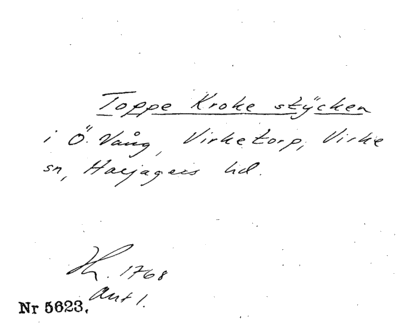 Toppe Kroke stycken
i Ö. Vång, Virketorp, Virke
sn, Harjagers hd.
H. 1768
Akt 1.
Nr 5623.